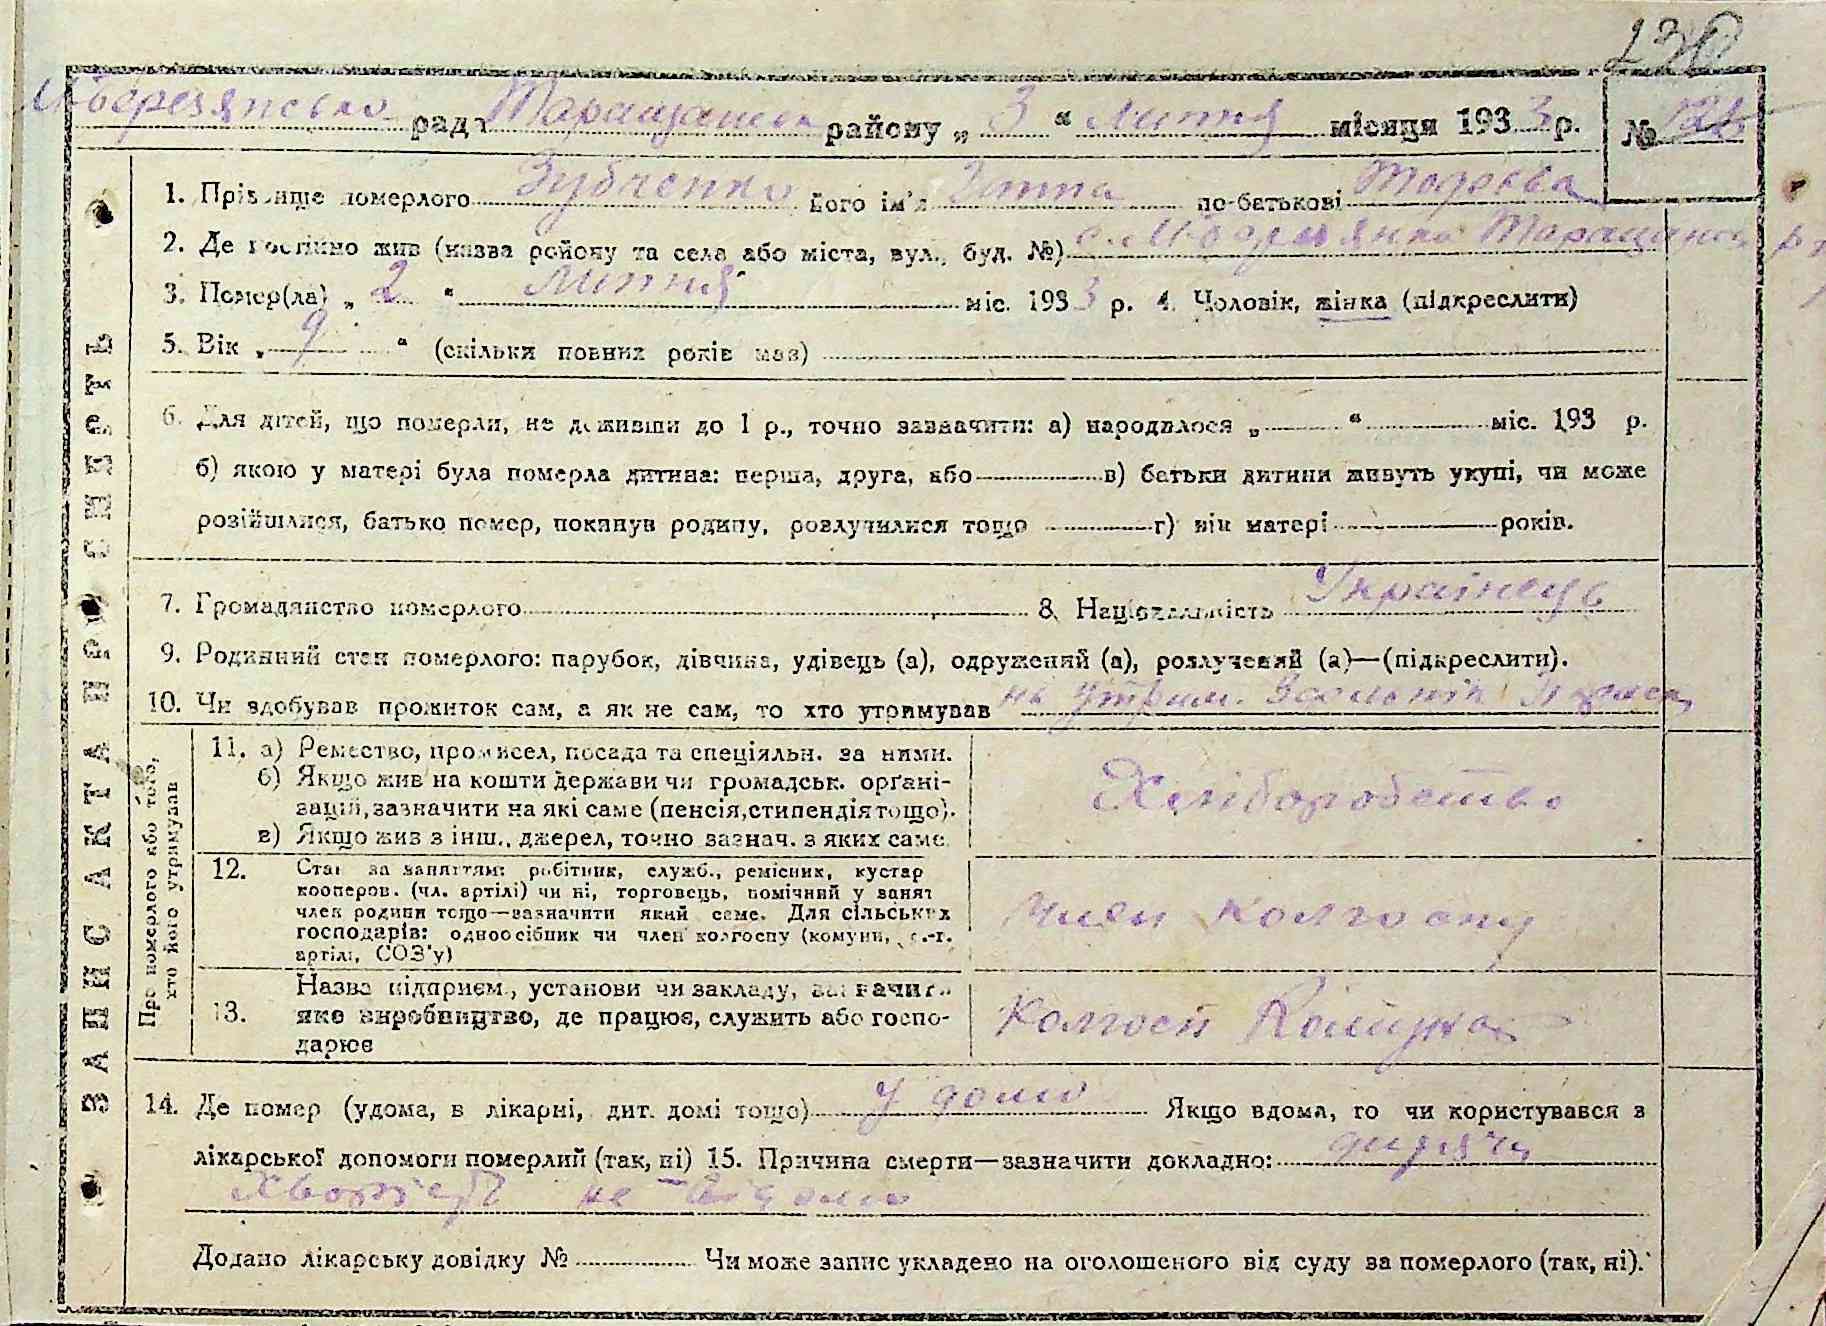 230
М-Березянська рада Таращанськ району „ 3 “ Липня місяця 1933 р. № 126
1. Прізвище померлого Зубченко його ім'я Ганна по-батькові
2. Де постійно жив (назва району та села або міста, вул., буд. №) с. М Березянка Таращанськ р-н
3. Помер(ла) „ 2 “ Липня міс. 1933 р. 4. Чоловік, жінка (підкреслити)
5. Вік „ 9 “ (скільки повних років мав)
6. Для дітей, що померли, не доживши до 1 р., точно зазначити: а) народилося „ “ міс. 193 р.
б) якою у матері була померла дитина: перша, друга, або в) батьки дитини живуть укупі, чи може
розійшлися, батько помер, покинув родину, розлучилися тощо г) вік матері років.
7. Громадянство померлого 8. Національність Українець
9. Родинний стан померлого: парубок, дівчина, удівець (а), одружений (а), розлучений (а)—(підкреслити).
10. Чи здобував прожиток сам, а як не сам, то хто утримував на утрим.
ЗАПИС АКТА ПРО СМЕРТЬ
Про померлого або того, хто його утримував
11. а) Ремество, промисел, посада та спеціяльн. за ними.
б) Якщо жив на кошти держави чи громадськ. органі-
зацій, зазначити на які саме (пенсія, стипендія тощо).
в) Якщо жив з інш., джерел, точно зазнач. з яких саме.
Хліборобство
12. Стан за заняттям: робітник, служб., ремісник, кустар
кооперов. (чл. артілі) чи ні, торговець, помічний у занят
член родини тощо—зазначити який саме. Для сільських
господарів: одноосібник чи член колгоспу (комуни, с.-г.
артілі, СОЗ'у)
Член колгоспу
13. Назва підприєм., установи чи закладу, зазначить
яке виробництво, де працює, служить або госпо-
дарює
Колгосп
14. Де помер (удома, в лікарні, дит. домі тощо) у дома Якщо вдома, то чи користувався з
лікарської допомоги померлий (так, ні) 15. Причина смерти—зазначити докладно: дитячи
хвороби не відомо
Додано лікарську довідку № Чи може запис укладено на оголошеного від суду за померлого (так, ні).